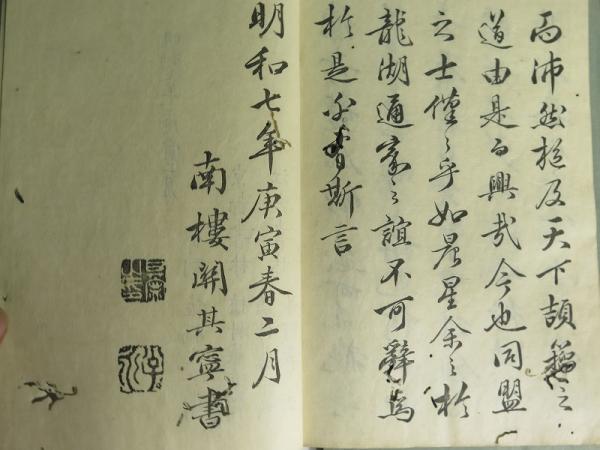 而沛然施及天下頡籀之
道由是而興哉今也同盟
之士僅〻乎如晨星余之於
龍湖通家之誼不可辭焉
於是斯言
明和七年庚寅春二月
南樓關其寧書